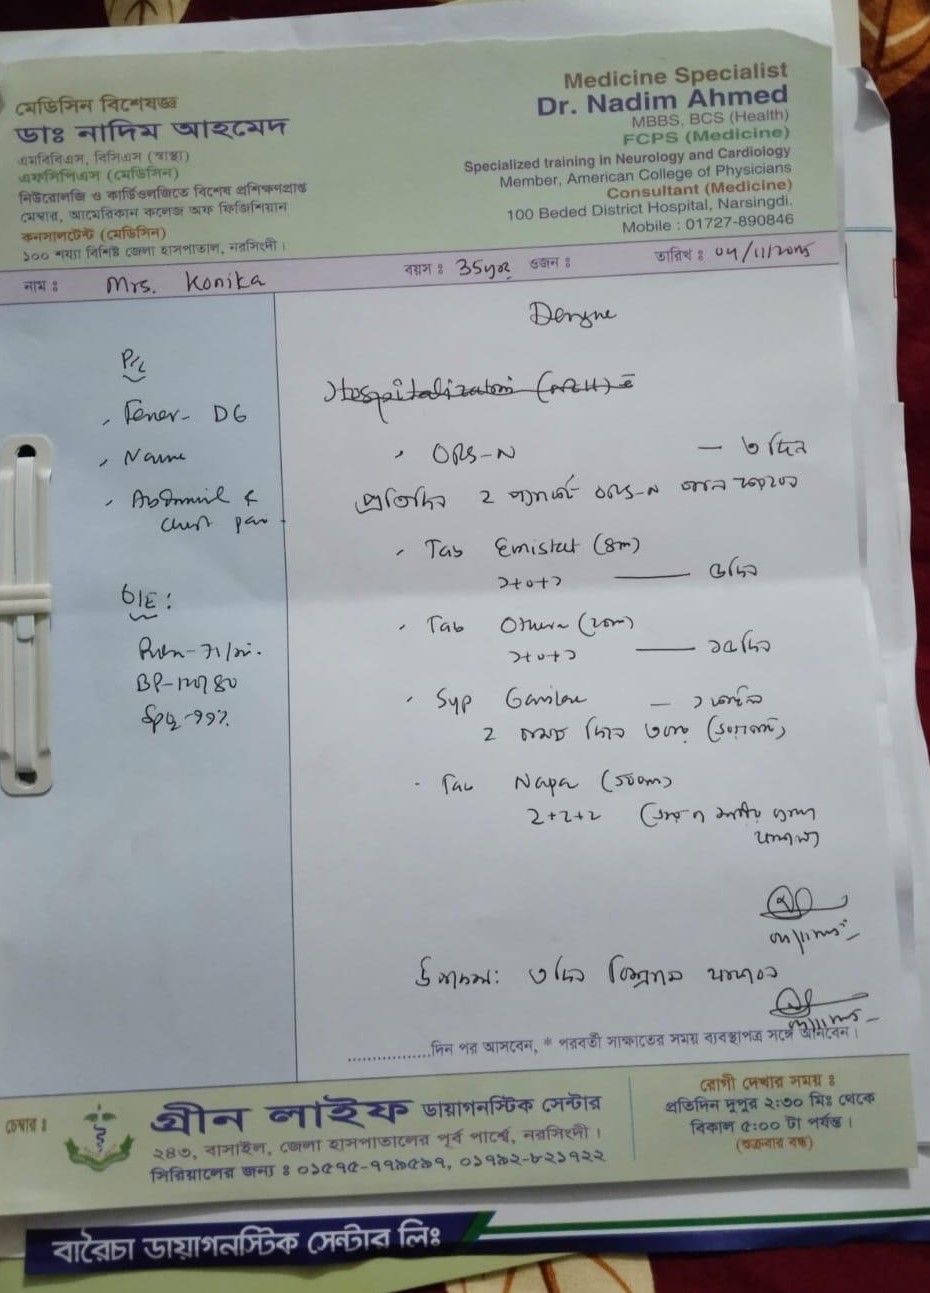 মেডিসিন বিশেষজ্ঞ
ডাঃ নাদিম আহমেদ
এমবিবিএস, বিসিএস (স্বাস্থ্য)
এফসিপিএস (মেডিসিন)
নিউরোলজি ও কার্ডিওলজিতে বিশেষ প্রশিক্ষণপ্রাপ্ত
মেম্বার, আমেরিকান কলেজ অফ ফিজিশিয়ান
কনসালটেন্ট (মেডিসিন)
১০০ শয্যা বিশিষ্ট জেলা হাসপাতাল, নরসিংদী।
Medicine Specialist
Dr. Nadim Ahmed
MBBS, BCS (Health)
FCPS (Medicine)
Specialized training in Neurology and Cardiology
Member, American College of Physicians
Consultant (Medicine)
100 Beded District Hospital, Narsingdi.
Mobile : 01727-890846
নাম ঃ Mrs. Konika বয়স ঃ 35yrs ওজন ঃ তারিখ ঃ
P/c
Fever- D6
Abdominal &
chest pain
O/E:
Pulse-71/min.
BP-120/80
SpO2-99%
Dengue
ORS-N — ৩ দিন
প্রতিদিন 2 প্যাকেট ORS-N
Tab Emistat (8m)
১+০+১
Tab (20m)
১+০+১
Syp
2 চামচ দিনে ৩বার
Tab Napa (500m)
2+2+2
উপদেশ: ৩ দিন বিশ্রামে থাকবেন
..............দিন পর আসবেন, * পরবর্তী সাক্ষাতের সময় ব্যবস্থাপত্র সঙ্গে আনিবেন।
চেম্বার ঃ
গ্রীন লাইফ ডায়াগনস্টিক সেন্টার
২৪৩, বাসাইল, জেলা হাসপাতালের পূর্ব পার্শ্বে, নরসিংদী।
সিরিয়ালের জন্য ঃ ০১৫৭৫-৭৭৯৫৯৭, ০১৯৯২-৮২১৭২২
রোগী দেখার সময় ঃ
প্রতিদিন দুপুর ২:৩০ মিঃ থেকে
বিকাল ৫:০০ টা পর্যন্ত।
(শুক্রবার বন্ধ)
বারৈচা ডায়াগনস্টিক সেন্টার লিঃ